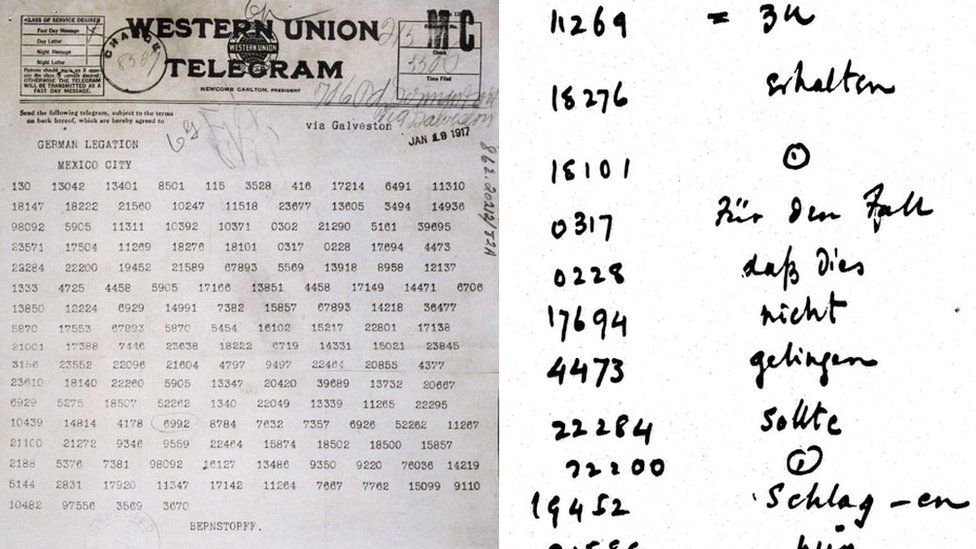 CLASS OF SERVICE DESIRED
Fast Day Message
Day Letter
Night Message
Night Letter
Patrons should mark an X oppo-
site the class of service desired;
OTHERWISE THE TELEGRAM
WILL BE TRANSMITTED AS A
FAST DAY MESSAGE.
WESTERN UNION
WESTERN UNION
TELEGRAM
NEWCOMB CARLTON, PRESIDENT
CHARGE
Check
Time Filed
Send the following telegram, subject to the terms
on back hereof, which are hereby agreed to
via Galveston
JAN 19 1917
GERMAN LEGATION
MEXICO CITY
130 13042 13401 8501 115 3528 416 17214 6491 11310
18147 18222 21560 10247 11518 23677 13605 3494 14936
98092 5905 11311 10392 10371 0302 21290 5161 39695
23571 17504 11269 18276 18101 0317 0228 17694 4473
22284 22200 19452 21589 67893 5569 13918 8958 12137
1333 4725 4458 5905 17166 13851 4458 17149 14471 6706
13850 12224 6929 14991 7382 15857 67893 14218 36477
5870 17553 67893 5870 5454 16102 15217 22801 17138
21001 17388 7446 23638 18222 6719 14331 15021 23845
3156 23552 22096 21604 4797 9497 22464 20855 4377
23610 18140 22260 5905 13347 20420 39689 13732 20667
6929 5275 18507 52262 1340 22049 13339 11265 22295
10439 14814 4178 6992 8784 7632 7357 6926 52262 11267
21100 21272 9346 9559 22464 15874 18502 18500 15857
2188 5376 7381 98092 16127 13486 9350 9220 76036 14219
5144 2831 17920 11347 17142 11264 7667 7762 15099 9110
10482 97556 3569 3670
BERNSTORFF.
11269 = zu
18276 erhalten
18101
0317 Für den Fall
0228 daß dies
17694 nicht
4473 gelingen
22284 sollte
22200
19452 Schlag-en